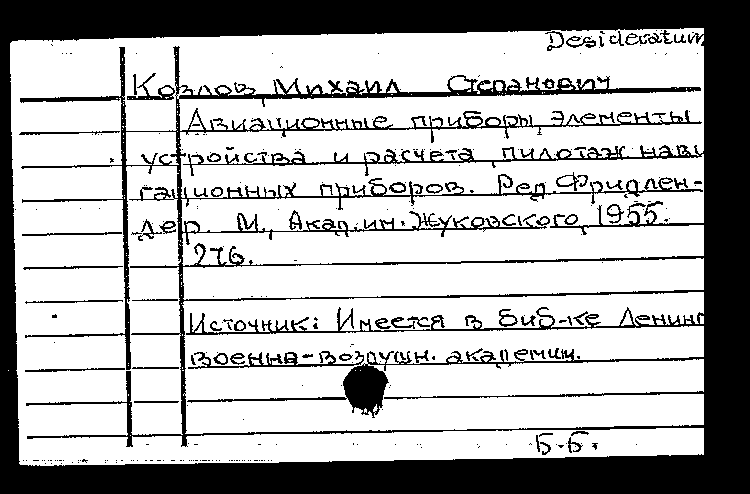 Desideratum
Козлов, Михаил Степанович
Авиационные приборы, элементы
устройства и расчета, пилотаж нави
гационных приборов. Ред. Фридлен-
дер. М., Акад. им. Жуковского, 1955.
276.
Источник: Имеется в биб-ке Ленинг
военна-воздушн. академии.
Б-Б.